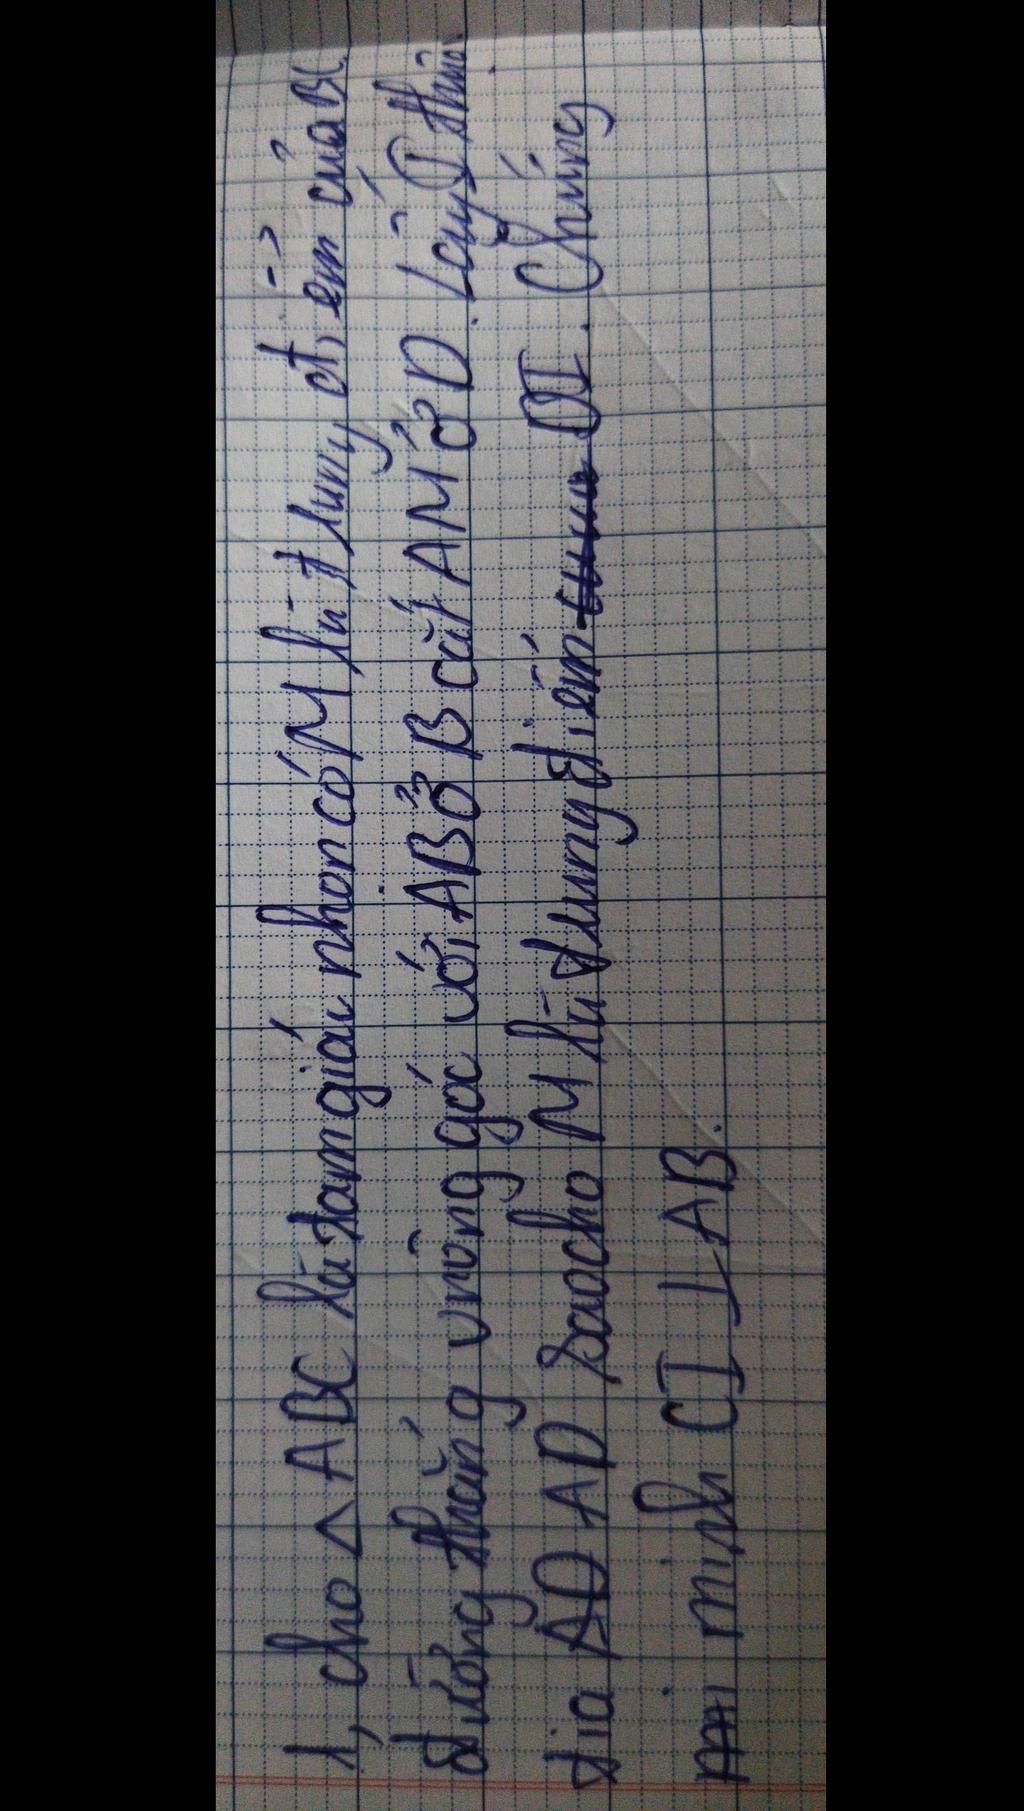 1, cho △ ABC là tam giác nhọn có M là trung điểm của BC.
đường thẳng vuông góc với AB ở B cắt AM ở D. Lấy I thuộc
tia AD sao cho M là trung điểm DI. Chứng
minh CI ⊥ AB.